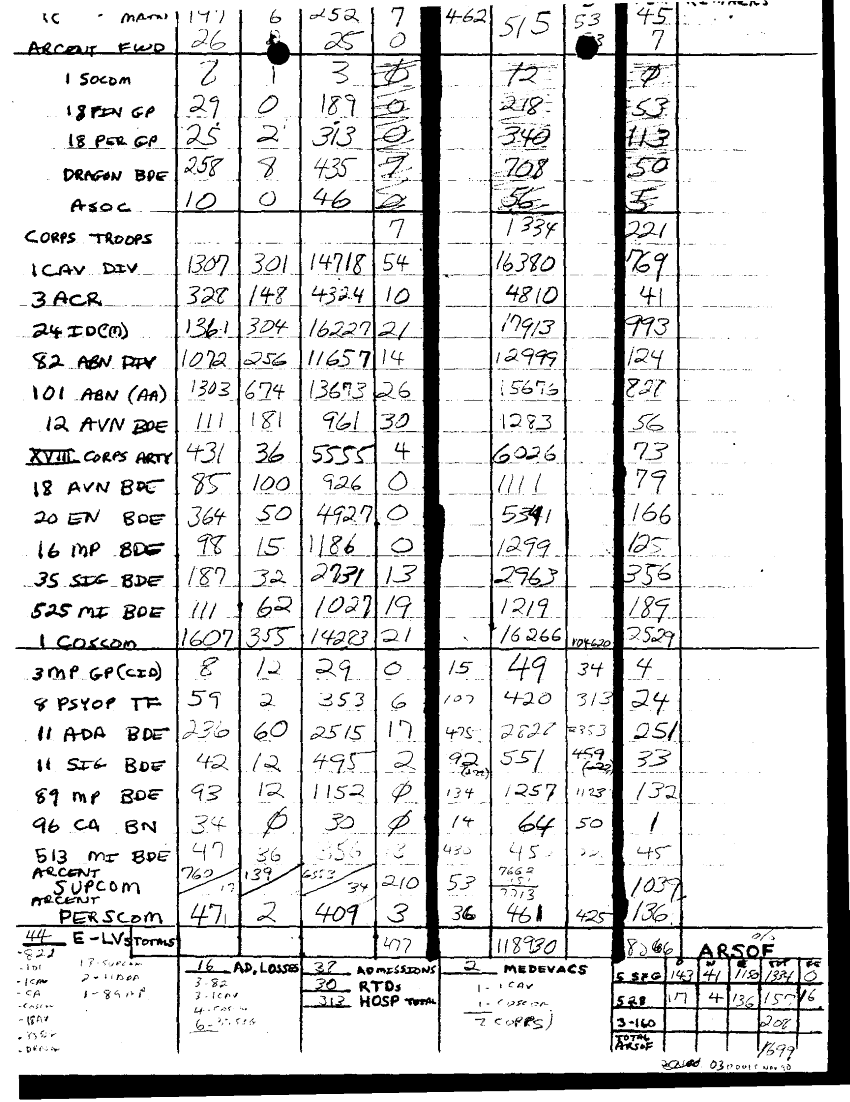 MAIN 197 6 252 7 462 515 53 45
ARCENT FWD 26 25 0 7
1 SOCOM 2 1 3 Ø 12 Ø
18 FIN GP 29 0 189 0 218 53
18 PER GP 25 2 313 0 340 113
DRAGON BDE 258 8 435 7 708 50
ASOC 10 0 46 0 56 5
CORPS TROOPS 7 1334 221
1 CAV DIV 1307 301 14718 54 16380 769
3 ACR 328 148 4324 10 4810 41
24 ID(M) 1361 304 16227 21 17913 993
82 ABN DIV 1072 256 11657 14 12999 124
101 ABN (AA) 1303 674 13673 26 15676 827
12 AVN BDE 111 181 961 30 1283 56
XVIII CORPS ARTY 431 36 5555 4 6026 73
18 AVN BDE 85 100 926 0 1111 79
20 EN BDE 364 50 4927 0 5341 166
16 MP BDE 98 15 1186 0 1299 125
35 SIG BDE 187 32 2731 13 2963 356
525 MI BDE 111 62 1027 19 1219 189
1 COSCOM 1607 355 14283 21 16266 104620 2529
3 MP GP (CID) 8 12 29 0 15 49 34 4
8 PSYOP TF 59 2 353 6 107 420 313 24
11 ADA BDE 236 60 2515 17 475 2828 2353 251
11 SIG BDE 42 12 495 2 92 551 459 33
89 MP BDE 93 12 1152 Ø 134 1257 1123 132
96 CA BN 34 Ø 30 Ø 14 64 50 1
513 MI BDE 47 36 356 3 430 45 45
ARCENT SUPCOM 760 139 34 210 53 7713 1039
ARCENT PERSCOM 47 2 409 3 36 461 425 136
44 E-LVs TOTALS 477 118930
16 AD. LOSSES
3-82
3-1CAV
37 ADMISSIONS
30 RTDs
312 HOSP TOTAL
2 MEDEVACS
1-1CAV
1-COSCOM
2 CORPS)
ARSOF
5 SFG 143 41 1150 1334 0
528 17 4 136 157 16
3-160 208
TOTAL ARSOF 1699